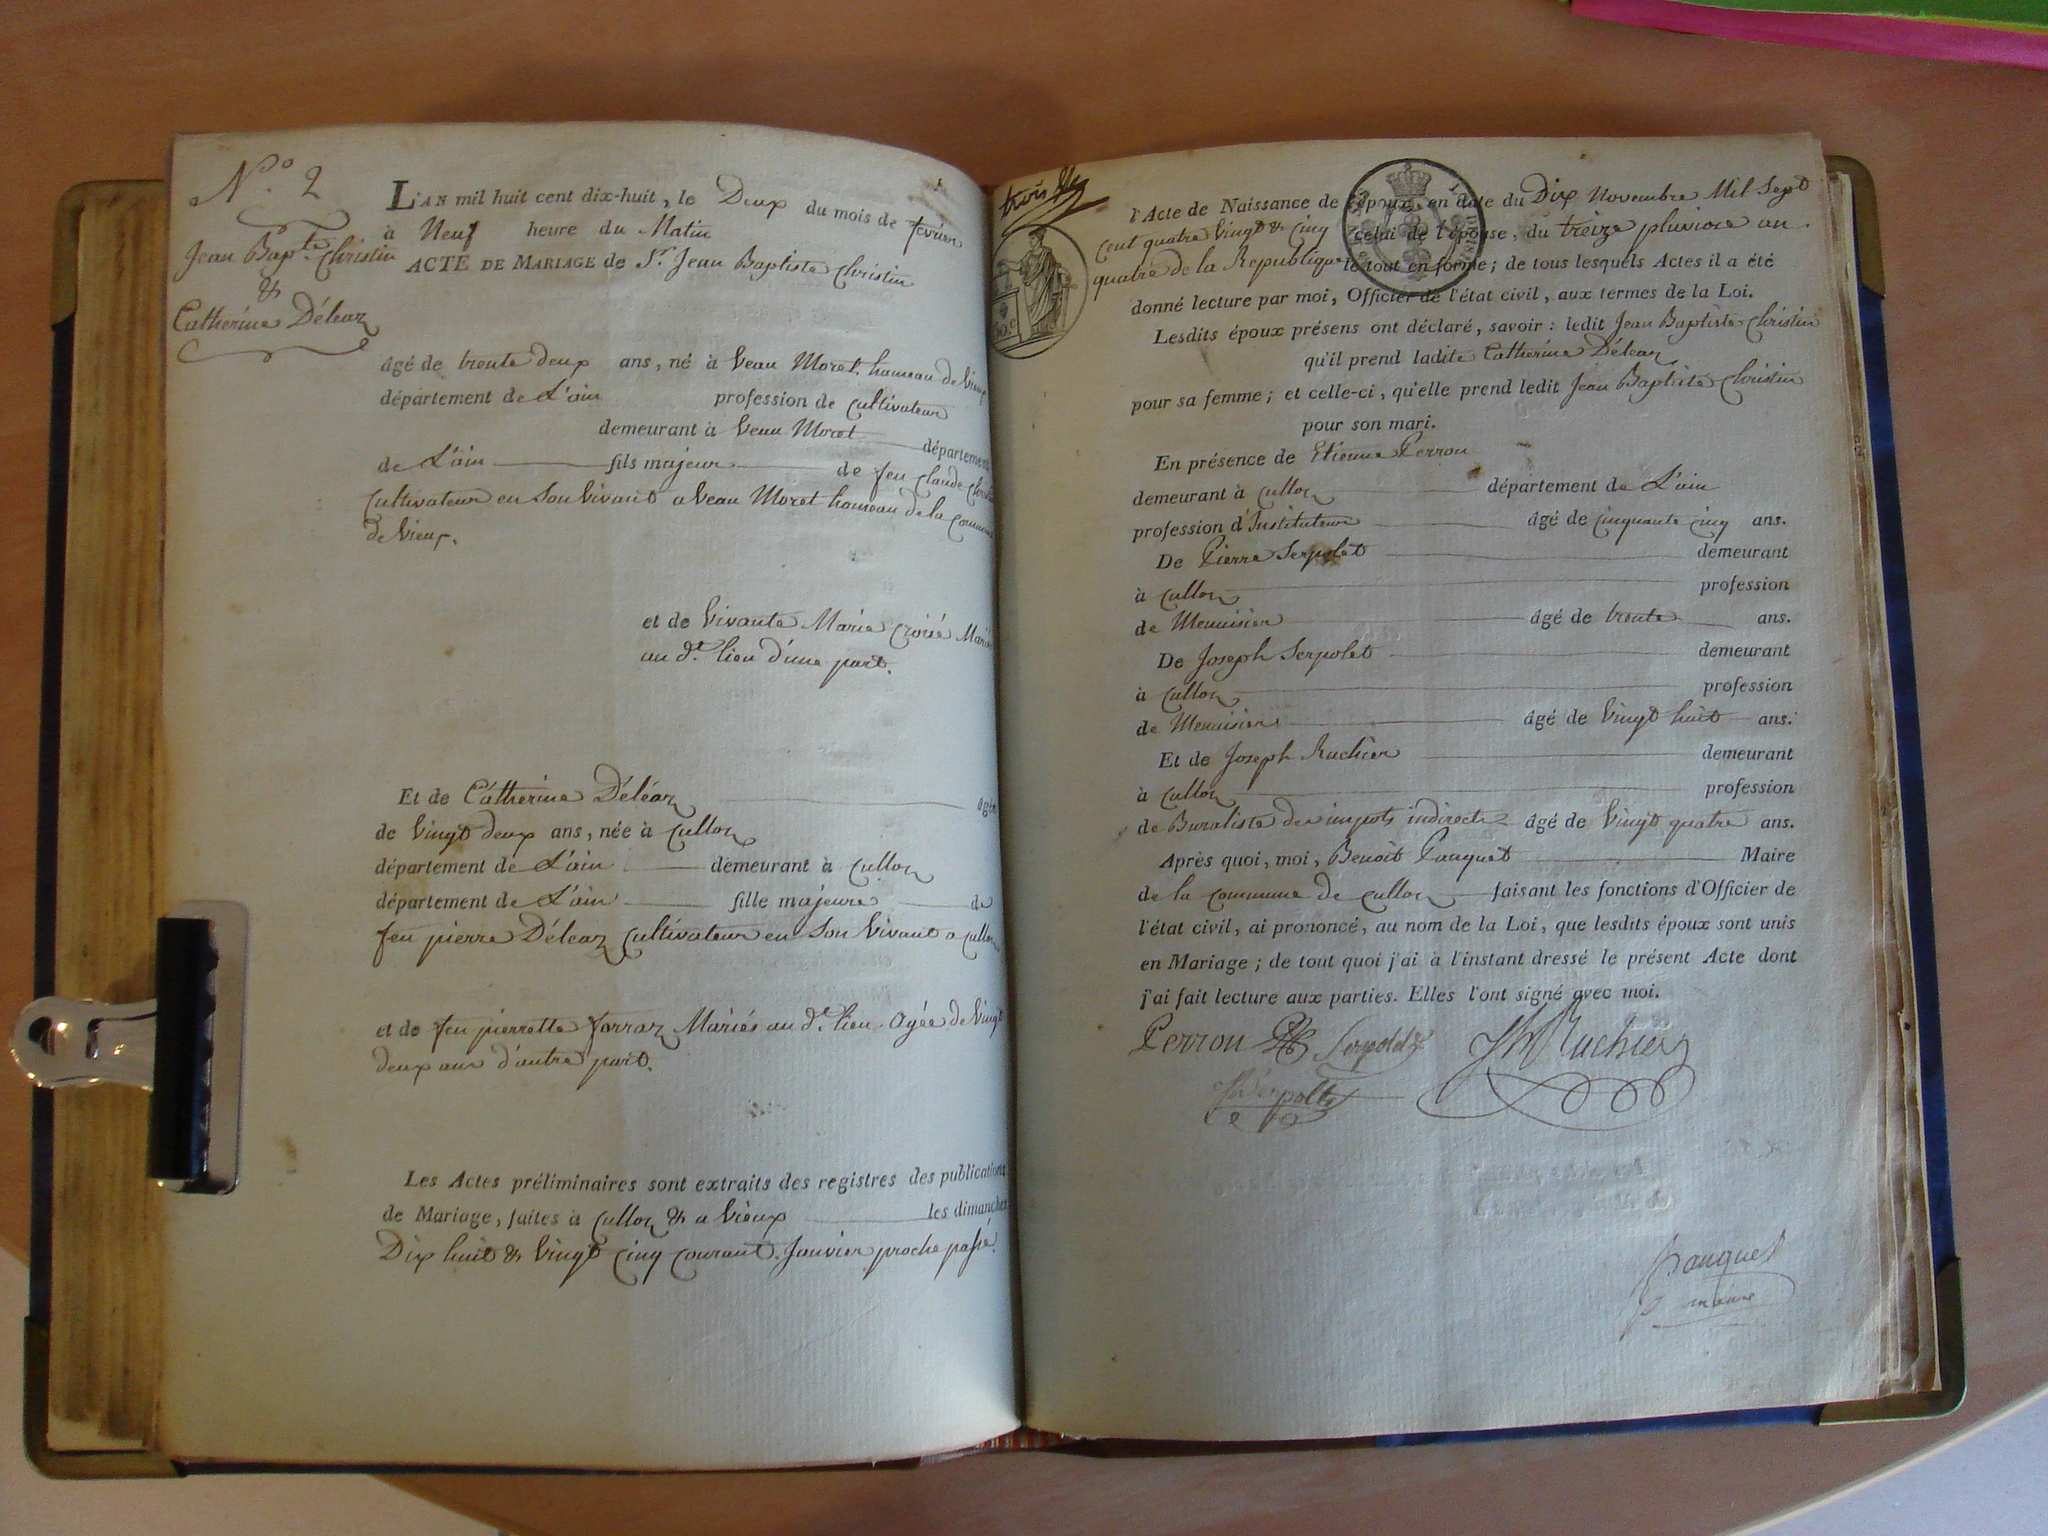 N.o 2
Jean Bap.te Christin
&
Catherine Déléaz
L'AN mil huit cent dix-huit, le Deux du mois de fevrier
à Neuf heure du Matin
ACTE DE MARIAGE de Sr. Jean Baptiste Christin
âgé de trente deux ans, né à Veau Moret hameau de Vieux
département de L'ain profession de cultivateur
demeurant à Veau Moret département
de L'ain fils majeur de feu Claude
Cultivateur en Son Vivant a Veau Moret hameau de la commune
de Vieux.
et de Vivante Marie Croisé Mariés
au dt. lieu d'une part.
Et de Catherine Déléaz âgée
de Vingt deux ans, née à Culloz
département de L'ain demeurant à Culloz
département de L'ain fille majeure de
feu pierre Déléaz Cultivateur en Son Vivant a Culloz
et de feu pierrette farraz Mariés au dt. lieu. Agée de Vingt
deux ans d'autre part.
Les Actes préliminaires sont extraits des registres des publications
de Mariage, faites à Culloz & a Vieux les dimanches
Dix huit & Vingt Cinq courant. Janvier proche passé.
trois
l'Acte de Naissance de l'époux, en date du Dix Novembre Mil Sept
Cent quatre Vingt & Cinq celui de l'épouse, du treize pluviose an
quatre de la Republique le tout en forme; de tous lesquels Actes il a été
donné lecture par moi, Officier de l'état civil, aux termes de la Loi.
Lesdits époux présens ont déclaré, savoir: ledit Jean Baptiste Christin
qu'il prend ladite Catherine Déléaz
pour sa femme; et celle-ci, qu'elle prend ledit Jean Baptiste Christin
pour son mari.
En présence de Etienne Perrou
demeurant à Culloz département de L'ain
profession d'Instituteur âgé de cinquante cinq ans.
De Pierre Serpolet demeurant
à Culloz profession
de Menuisier âgé de trente ans.
De Joseph Serpolet demeurant
à Culloz profession
de Menuisier âgé de Vingt huit ans.
Et de Joseph Ruchier demeurant
à Culloz profession
de Buraliste des impots indirects âgé de Vingt quatre ans.
Après quoi, moi, Benoit Pauquet Maire
de la commune de Culloz faisant les fonctions d'Officier de
l'état civil, ai prononcé, au nom de la Loi, que lesdits époux sont unis
en Mariage; de tout quoi j'ai à l'instant dressé le présent Acte dont
j'ai fait lecture aux parties. Elles l'ont signé avec moi.
Perrou Serpolet Jh Ruchier
Jh Serpolet
pauquet
maire